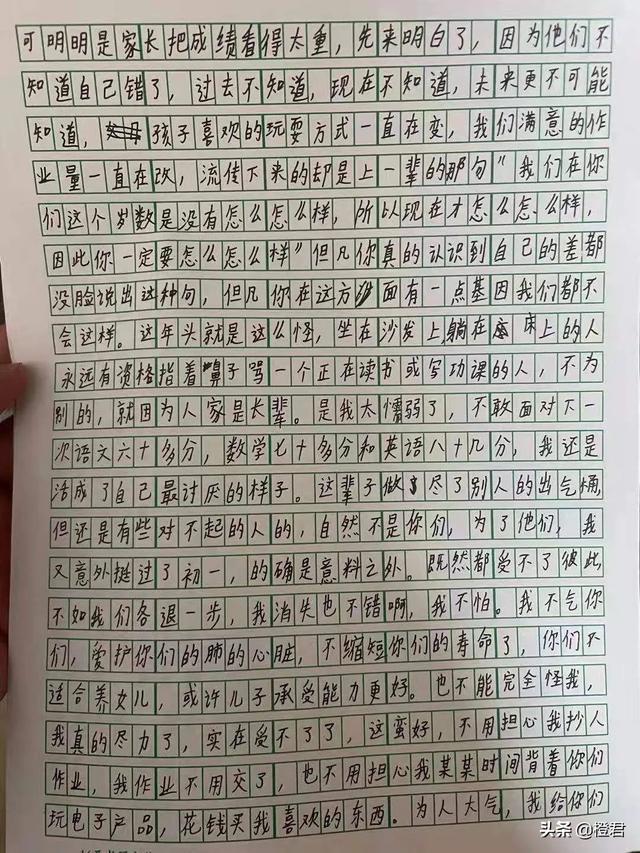 可明明是家长把成绩看得太重，先来明白了，因为他们不
知道自己错了，过去不知道，现在不知道，未来更不可能
知道，孩子喜欢的玩耍方式一直在变，我们满意的作
业量一直在改，流传下来的却是上一辈的那句“我们在你
们这个岁数是没有怎么怎么样，所以现在才怎么怎么样，
因此你一定要怎么怎么样”但凡你真的认识到自己的差都
没脸说出这种句，但凡你在这方面有一点基因我们都不
会这样。这年头就是这么怪，坐在沙发上躺在床上的人
永远有资格指着鼻子骂一个正在读书或写功课的人，不为
别的，就因为人家是长辈。是我太懦弱了，不敢面对下一
次语文六十多分，数学七十多分和英语八十几分，我还是
活成了自己最讨厌的样子。这辈子做尽了别人的出气桶，
但还是有些对不起的人的，自然不是你们，为了他们，我
又意外挺过了初一，的确是意料之外。既然都受不了彼此，
不如我们各退一步，我消失也不错啊，我不怕。我不气你
们，爱护你们的肺的心脏，不缩短你们的寿命了，你们不
适合养女儿，或许儿子承受能力更好。也不能完全怪我，
我真的尽力了，实在受不了了，这蛮好，不用担心我抄人
作业，我作业不用交了，也不用担心我某某时间背着你们
玩电子产品，花钱买我喜欢的东西。为人大气，我给你们
头条 @橙君